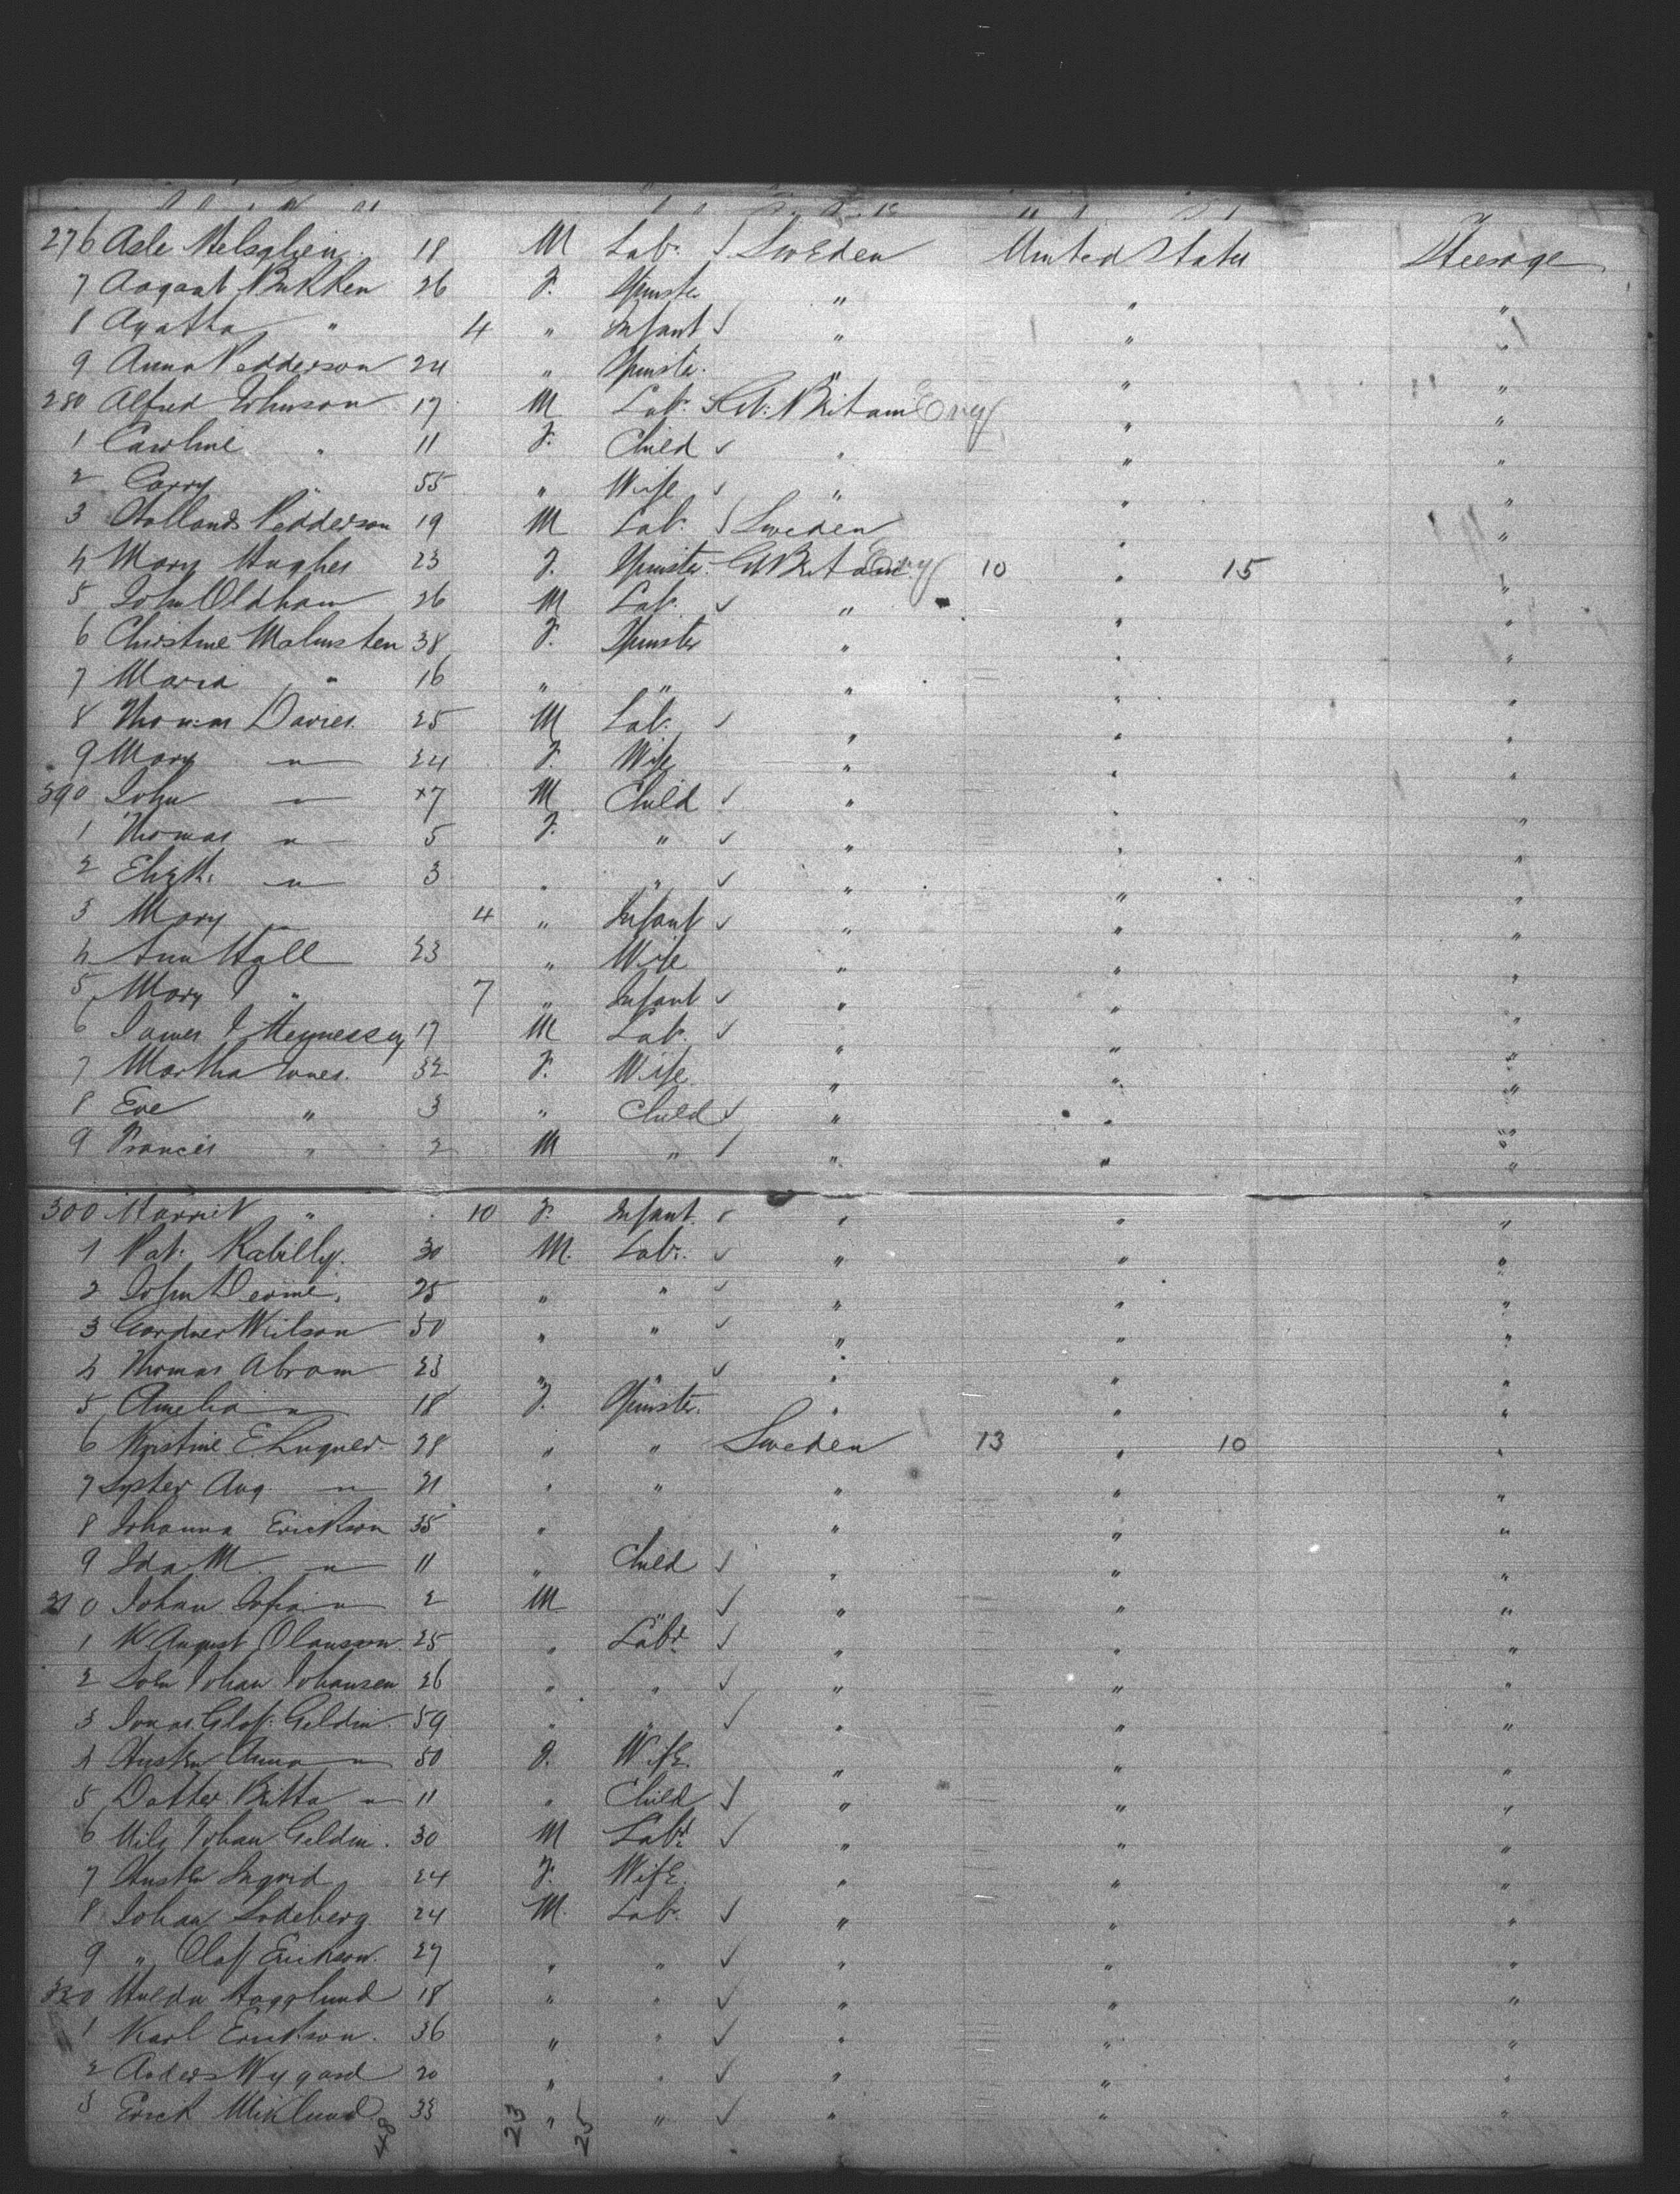 276 Asle Helsglien. 18 M Lab. Sweden United States Steerage
7 Aagaat Bakken 26 F. Spinster " " "
8 Agatha " 4 " Infant " " "
9 Anna Pedderson 24 " Spinster. " " "
280 Alfred Johnson 17 M Lab. Gt. Britain Eng " "
1 Caroline " 11 F. Child " " "
2 Carry " 55 " Wife " " "
3 Hollands Pedderson 19 M Lab. Sweden " "
4 Mary Hughes 23 F. Spinster. Gt Britain Eng 10 " 15 "
5 John Oldham 26 M Lab. " " "
6 Christine Malmsten 38 F. Spinster " " "
7 Maria " 16 " " " " "
8 Thomas Davies. 25 M Lab. " " "
9 Mary " 24 F. Wife " " "
290 John " 7 M Child " " "
1 Thomas " 5 F. " " " "
2 Elizth. " 3 " " " " "
3 Mary 4 " Infant " " "
4 Ann Hall 23 " Wife " " "
5 Mary " 7 " Infant " " "
6 James J Hennessey 17 M Lab. " " "
7 Martha Jones. 32 F. Wife " " "
8 Eve " 3 " Child " " "
9 Francis " 2 M " " " "
300 Harriet " 10 F. Infant. " " "
1 Pat. Rabilly. 30 M. Labr. " " "
2 John 25 " " " " "
3 Gardner Wilson 50 " " " " "
4 Thomas Abram 23 " " " " "
5 Amelia " 18 F. Spinster. " " "
6 Kristine E. 28 " " Sweden 13 " 10 "
7 Syster Aug. " 21 " " " " "
8 Johanna Erickson 35 " " " "
9 Ida M. " 11 " Child " " "
310 Johan Sofia " 2 M " " " "
1 K August Olausson. 25 " Labr. " " "
2 Sven Johan Johansen 26 " " " " "
3 Jonas Olof. Geldin. 59 " " " " "
4 Hustru Anna " 50 F. Wife. " " "
5 Dotter Britta " 11 " Child " " "
6 Nils Johan Geldin. 30 M Labr. " " "
7 Hustru Ingrid 24 F. Wife. " " "
8 Johan Sodeberg 24 M. Labr. " " "
9 " Olof Erickson. 27 " " " " "
320 Hulda Hagglund 18 " " " " "
1 Karl Erickson. 36 " " " " "
2 Anders Nygard 20 " " " " "
3 Erick Wiklund 33 " " " " "
48 23 25